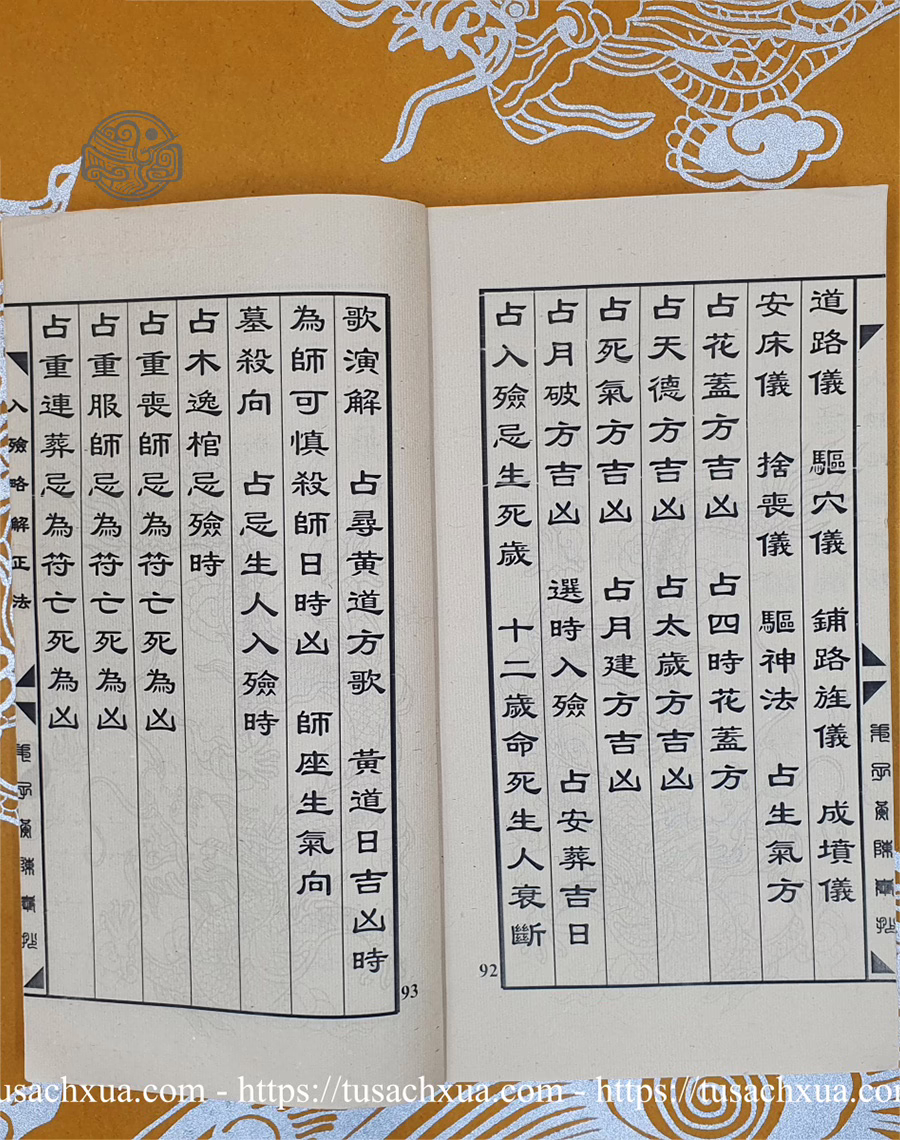 道路儀 驅穴儀 鋪路旌儀 成墳儀
安床儀 捨喪儀 驅神法 占生氣方
占花蓋方吉凶 占四時花蓋方
占天德方吉凶 占太歲方吉凶
占死氣方吉凶 占月建方吉凶
占月破方吉凶 選時入殮 占安葬吉日
占入殮忌生死歲 十二歲命死生人衰斷
92
歌演解 占尋黃道方歌 黃道日吉凶時
為師可慎殺師日時凶 師座生氣向
墓殺向 占忌生人入殮時
占木逸棺忌殮時
占重喪師忌為符亡死為凶
占重服師忌為符亡死為凶
占重連葬忌為符亡死為凶
入殮略解正法
93
tusachxua.com - https://tusachxua.com - https://tusachxua.co